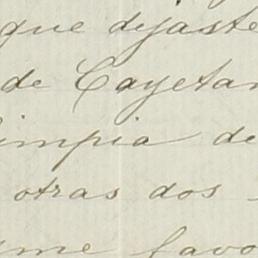 que dejaste
de Cayetan
impia de
otras dos
me favo